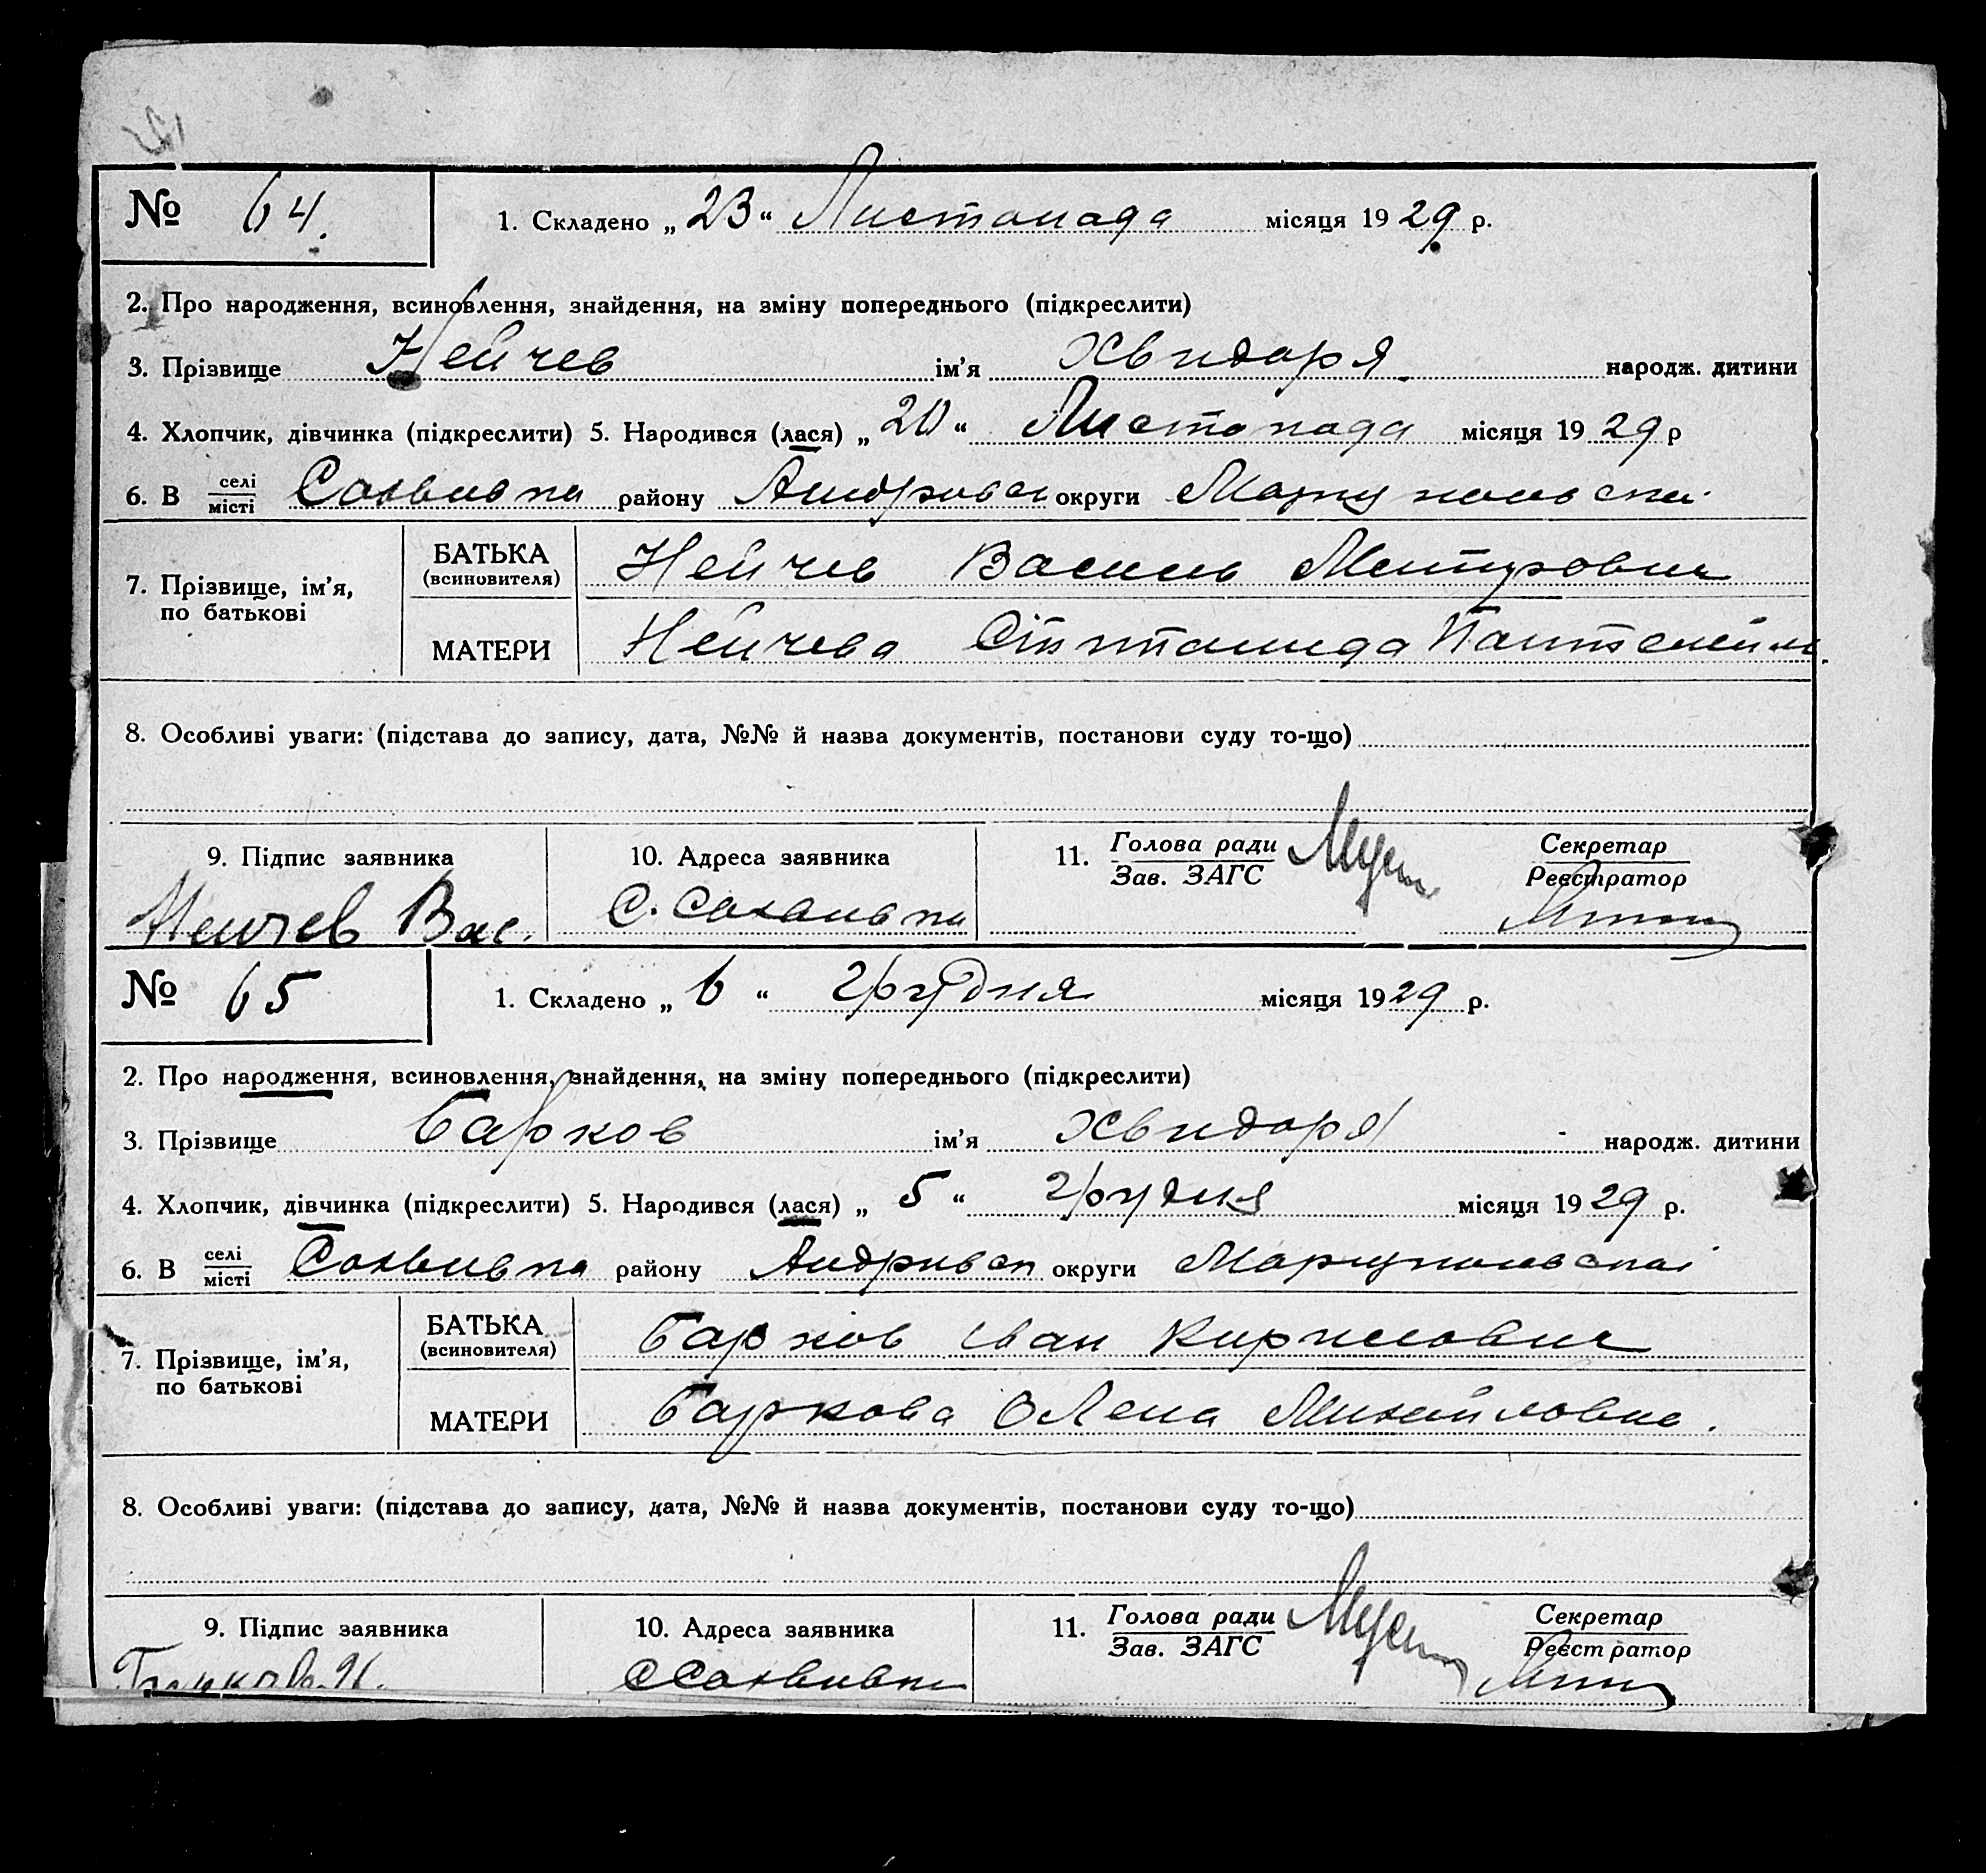 № 64. 1. Складено „23“ Листопада місяця 1929 р.
2. Про народження, всиновлення, знайдення, на зміну попереднього (підкреслити)
3. Прізвище Нейчев ім'я Хвидоря народж. дитини
4. Хлопчик, дівчинка (підкреслити) 5. Народився (лася) „20“ Листопада місяця 1929 р
6. В селі
місті району округи
7. Прізвище, ім'я,
по батькові
БАТЬКА
(всиновителя)
Нейчев Василь
МАТЕРИ
Нейчева
8. Особливі уваги: (підстава до запису, дата, №№ й назва документів, постанови суду то-що)
9. Підпис заявника
Нейчев Вас.
10. Адреса заявника
с.
11. Голова ради
Зав. ЗАГС
Секретар
Реєстратор
№ 65 1. Складено „6“ грудня місяця 1929 р.
2. Про народження, всиновлення, знайдення, на зміну попереднього (підкреслити)
3. Прізвище Барков ім'я Хвидоря народж. дитини
4. Хлопчик, дівчинка (підкреслити) 5. Народився (лася) „5“ грудня місяця 1929 р.
6. В селі
місті району округи
7. Прізвище, ім'я,
по батькові
БАТЬКА
(всиновителя)
Барков Іван Кирилович
МАТЕРИ
Баркова Олена Михайловна.
8. Особливі уваги: (підстава до запису, дата, №№ й назва документів, постанови суду то-що)
9. Підпис заявника
10. Адреса заявника
11. Голова ради
Зав. ЗАГС
Секретар
Реєстратор